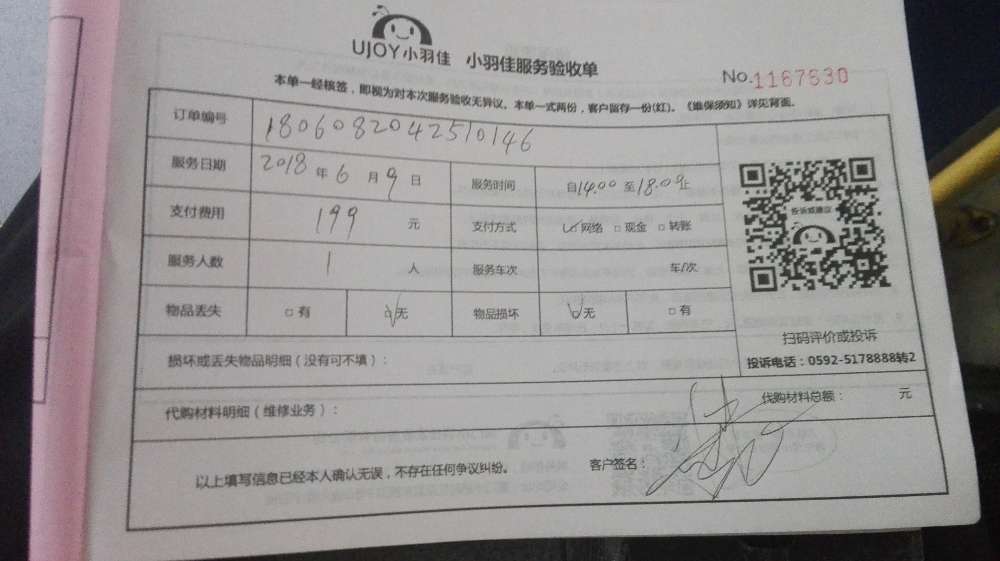 UJOY小羽佳 小羽佳服务验收单
No.1167630
本单一经核签，即视为对本次服务验收无异议。本单一式两份，客户留存一份(红)。《维保须知》详见背面。
订单编号 180608204251014​6
服务日期 2018 年 6 月 9 日 服务时间 自14:00 至18:00止
支付费用 199 元 支付方式 ☑网络 □现金 □转账
服务人数 1 人 服务车次 车/次
物品丢失 □有 ☑无 物品损坏 ☑无 □有
投诉或建议
扫码评价或投诉
投诉电话：0592-5178888转2
损坏或丢失物品明细（没有可不填）：
代购材料明细（维修业务）： 代购材料总额： 元
以上填写信息已经本人确认无误，不存在任何争议纠纷。 客户签名：